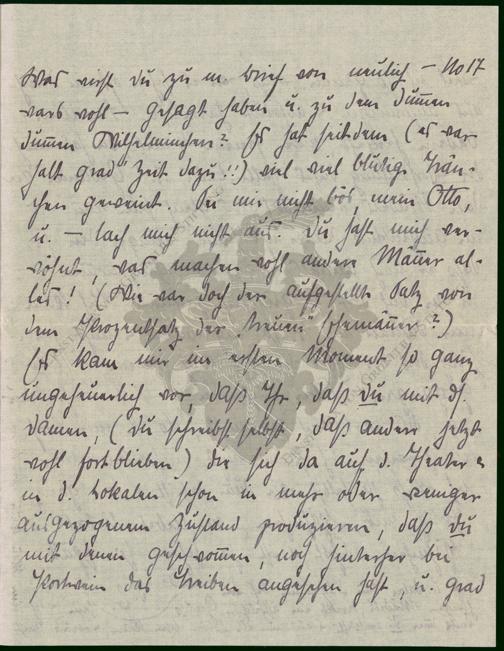 Was wirst du zu m. Brief von neulich – No 17
wars wohl – gesagt haben u. zu dem dum̅en
dum̅en Wilhelminchen? Es hat seitdem (es war
halt grad Zeit dazu!!) viel viel blutige Trän-
chen geweint. Sei mir nicht bös, mein Otto,
u. – lach mich nicht aus. Du hast mich ver-
wöhnt, was machen wohl andere Män̅er al-
les! (Wie war doch der aufgestellte Satz von
dem Prozentsatz der treuen Ehemän̅er?)
(Es kam mir im ersten Moment so ganz
ungeheuerlich vor, daß Ihr, daß du mit ds.
Damen, (du schreibst selbst, daß andere jetzt
wohl fortblieben) die sich da auf d. Theater
in d. Lokalen schon in mehr oder weniger
ausgezogenem Zustand produzieren, daß du
mit denen geschwom̅en, noch hinterher bei
Portwein das Treiben angesehen hast, u. grad